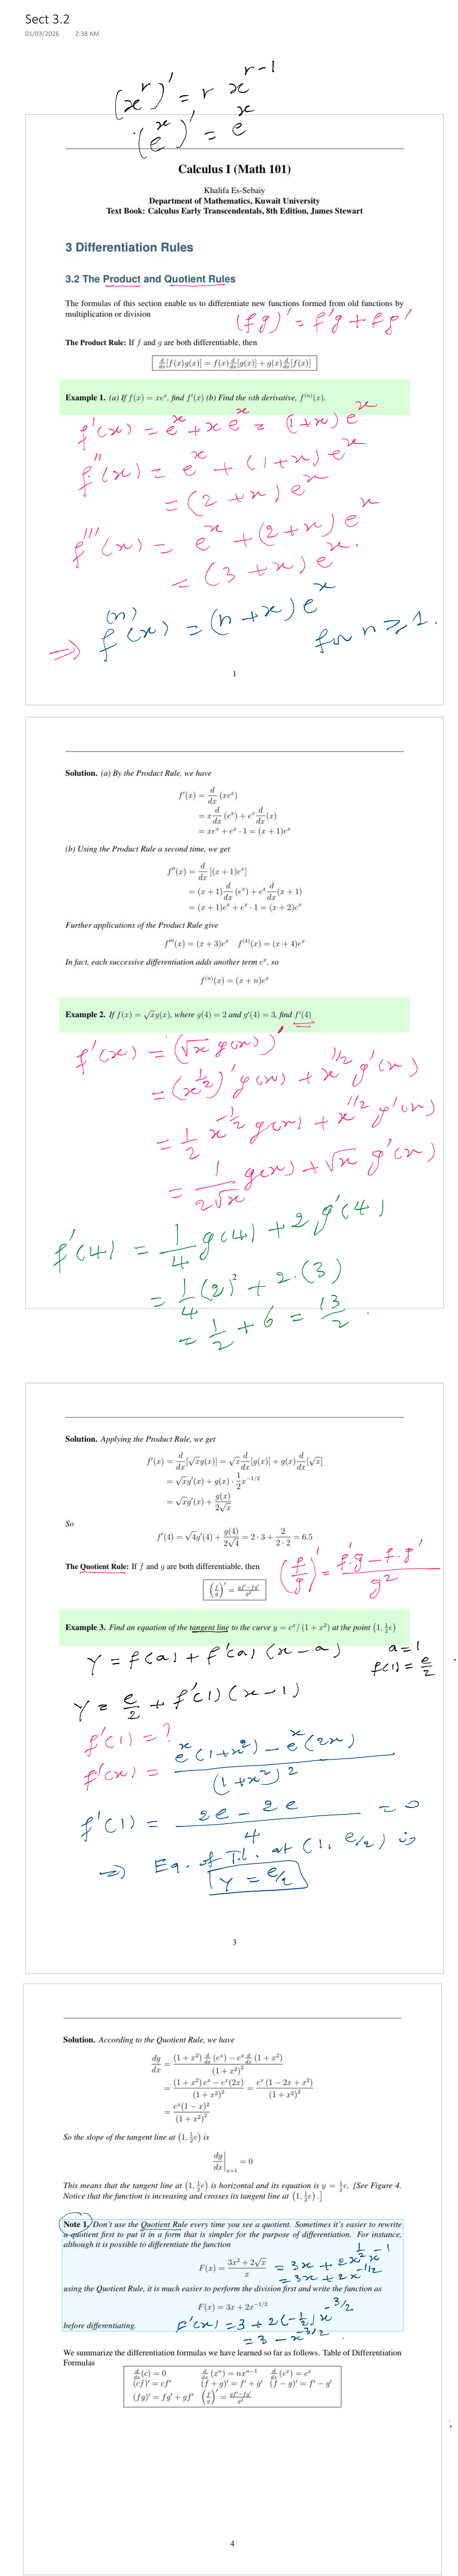 Sect 3.2
01/03/2026 2:38 AM
(x^r)' = r x^{r-1}
(e^x)' = e^x
Calculus I (Math 101)
Khalifa Es-Sebaiy
Department of Mathematics, Kuwait University
Text Book: Calculus Early Transcendentals, 8th Edition, James Stewart
3 Differentiation Rules
3.2 The Product and Quotient Rules
The formulas of this section enable us to differentiate new functions formed from old functions by
multiplication or division
(fg)' = f'g + fg'
The Product Rule: If f and g are both differentiable, then
d/dx[f(x)g(x)] = f(x) d/dx[g(x)] + g(x) d/dx[f(x)]
Example 1. (a) If f(x) = xe^x, find f'(x) (b) Find the nth derivative, f^{(n)}(x).
f'(x) = e^x + x e^x = (1+x) e^x
f''(x) = e^x + (1+x) e^x
= (2+x) e^x
f'''(x) = e^x + (2+x) e^x
= (3+x) e^x.
⇒ f^{(n)}(x) = (n+x) e^x for n ⩾ 1.
1
Solution. (a) By the Product Rule, we have
f'(x) = d/dx (xe^x)
= x d/dx (e^x) + e^x d/dx (x)
= xe^x + e^x · 1 = (x + 1)e^x
(b) Using the Product Rule a second time, we get
f''(x) = d/dx [(x + 1)e^x]
= (x + 1) d/dx (e^x) + e^x d/dx (x + 1)
= (x + 1)e^x + e^x · 1 = (x + 2)e^x
Further applications of the Product Rule give
f'''(x) = (x + 3)e^x f^{(4)}(x) = (x + 4)e^x
In fact, each successive differentiation adds another term e^x, so
f^{(n)}(x) = (x + n)e^x
Example 2. If f(x) = √x g(x), where g(4) = 2 and g'(4) = 3, find f'(4)
f'(x) = (√x g(x))'
= (x^{1/2})' g(x) + x^{1/2} g'(x)
= 1/2 x^{-1/2} g(x) + x^{1/2} g'(x)
= 1/(2√x) g(x) + √x g'(x)
f'(4) = 1/4 g(4) + 2 g'(4)
2
= 1/4 (2) + 2.(3)
= 1/2 + 6 = 13/2.
Solution. Applying the Product Rule, we get
f'(x) = d/dx[√x g(x)] = √x d/dx[g(x)] + g(x) d/dx[√x]
= √x g'(x) + g(x) · 1/2 x^{-1/2}
= √x g'(x) + g(x)/(2√x)
So
f'(4) = √4 g'(4) + g(4)/(2√4) = 2 · 3 + 2/(2 · 2) = 6.5
The Quotient Rule: If f and g are both differentiable, then
(f/g)' = (f'.g - f.g')/g^2
(f/g)' = (gf' − fg')/g^2
Example 3. Find an equation of the tangent line to the curve y = e^x/(1 + x^2) at the point (1, 1/2 e)
y = f(a) + f'(a) (x-a) a=1
f(1) = e/2
y = e/2 + f'(1) (x-1)
f'(1) = ?
f'(x) = (e^x(1+x^2) - e^x(2x))/(1+x^2)^2
f'(1) = (2e - 2e)/4 = 0
⇒ Eq. of T.l. at (1, e/2) is
y = e/2
3
Solution. According to the Quotient Rule, we have
dy/dx = ((1 + x^2) d/dx (e^x) − e^x d/dx (1 + x^2))/(1 + x^2)^2
= ((1 + x^2) e^x − e^x(2x))/(1 + x^2)^2 = e^x (1 − 2x + x^2)/(1 + x^2)^2
= e^x(1 − x)^2/(1 + x^2)^2
So the slope of the tangent line at (1, 1/2 e) is
dy/dx |_{x=1} = 0
This means that the tangent line at (1, 1/2 e) is horizontal and its equation is y = 1/2 e. [See Figure 4.
Notice that the function is increasing and crosses its tangent line at (1, 1/2 e).]
Note 1. Don't use the Quotient Rule every time you see a quotient. Sometimes it's easier to rewrite
a quotient first to put it in a form that is simpler for the purpose of differentiation. For instance,
although it is possible to differentiate the function
F(x) = (3x^2 + 2√x)/x = 3x + 2x^{1/2} x^{-1}
= 3x + 2x^{-1/2}
using the Quotient Rule, it is much easier to perform the division first and write the function as
F(x) = 3x + 2x^{-1/2}
before differentiating.
F'(x) = 3 + 2(-1/2) x^{-3/2}
= 3 - x^{-3/2}.
We summarize the differentiation formulas we have learned so far as follows. Table of Differentiation
Formulas
d/dx(c) = 0 d/dx(x^n) = nx^{n−1} d/dx(e^x) = e^x
(cf)' = cf' (f + g)' = f' + g' (f − g)' = f' − g'
(fg)' = fg' + gf' (f/g)' = (gf' − fg')/g^2
4